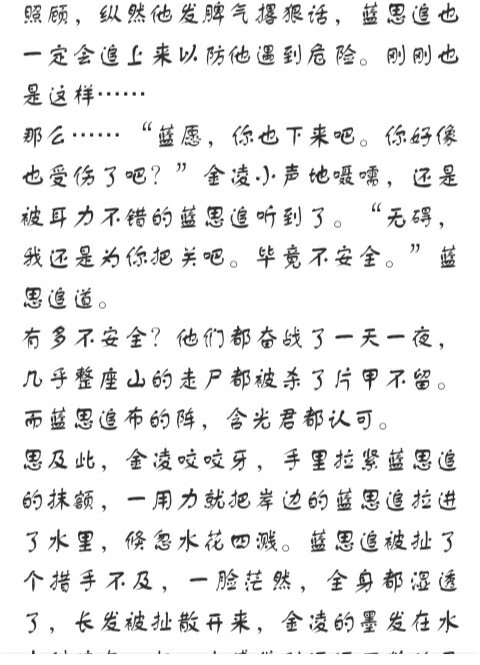 照顾，纵然他发脾气撂狠话，蓝思追也
一定会追上来以防他遇到危险。刚刚也
是这样……
那么……“蓝愿，你也下来吧。你好像
也受伤了吧？”金凌小声地嗫嚅，还是
被耳力不错的蓝思追听到了。“无碍，
我还是为你把关吧。毕竟不安全。”蓝
思追道。
有多不安全？他们都奋战了一天一夜，
几乎整座山的走尸都被杀了片甲不留。
而蓝思追布的阵，含光君都认可。
思及此，金凌咬咬牙，手里拉紧蓝思追
的抹额，一用力就把岸边的蓝思追拉进
了水里，倏忽水花四溅。蓝思追被扯了
个措手不及，一脸茫然，全身都湿透
了，长发被扯散开来，金凌的墨发在水